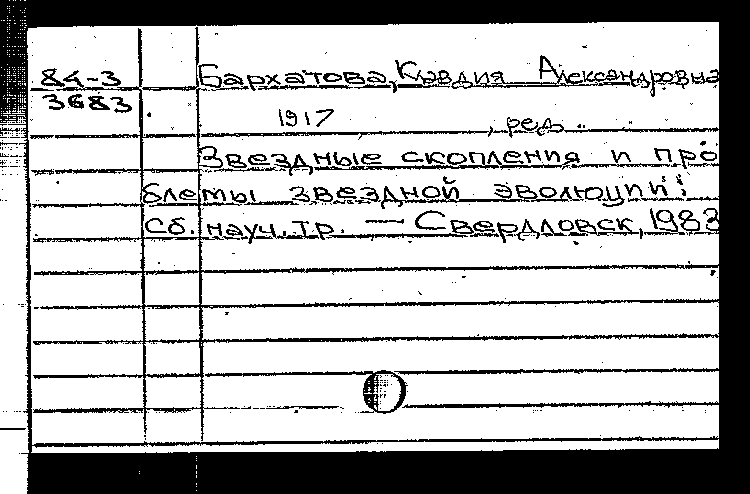 84-3 Бархатова, Клавдия Александровна
3683 1917 , ред.
Звездные скопления и про
блемы звездной эволюции:
Сб. науч. тр. — Свердловск, 1983